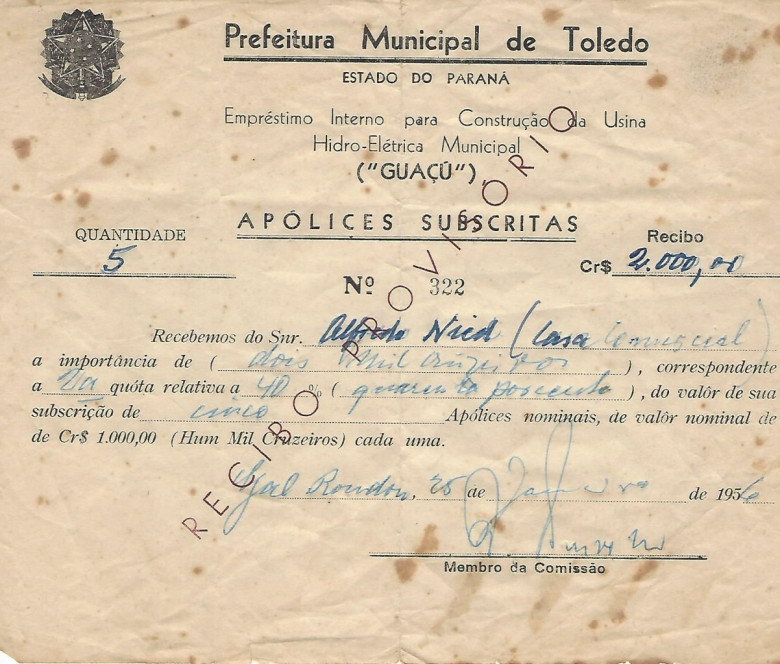 Prefeitura Municipal de Toledo
ESTADO DO PARANÁ
Empréstimo Interno para Construção da Usina
Hidro-Elétrica Municipal
("GUAÇÚ")
APÓLICES SUBSCRITAS
QUANTIDADE
5
Recibo
Cr$ 2.000,00
Nº 322
RECIBO PROVISÓRIO
Recebemos do Snr. Alfredo Nied (Casa Comercial)
a importância de ( dois mil cruzeiros ), correspondente
a quóta relativa a 40 % ( quarenta porcento ), do valôr de sua
subscrição de cinco Apólices nominais, de valôr nominal de
de Cr$ 1.000,00 (Hum Mil Cruzeiros) cada uma.
Gal Rondon, 25 de Janeiro de 1956
Membro da Comissão